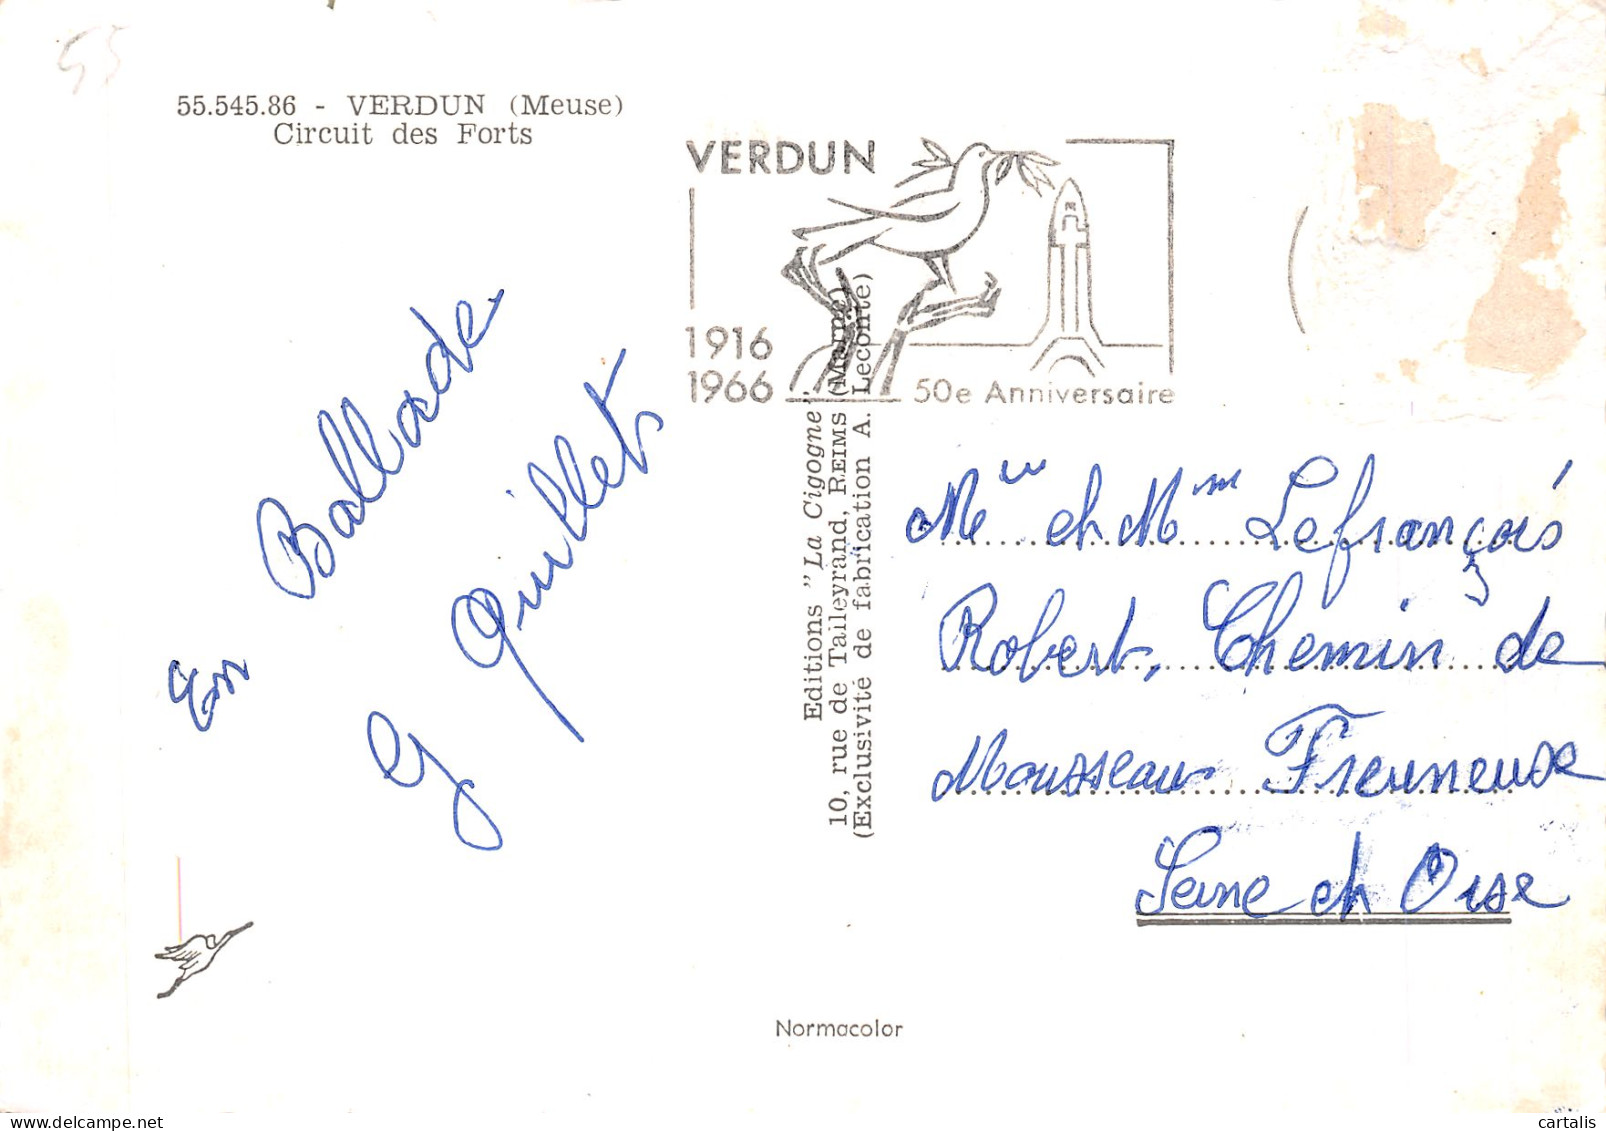 55
55.545.86 - VERDUN (Meuse)
Circuit des Forts
VERDUN
1916
1966
50e Anniversaire
En Ballade
G Quillet
Editions "La Cigogne"
10, rue de Talleyrand, REIMS (Marne)
(Exclusivité de fabrication A. Leconte)
Mr et Mme Lefrançois
Robert, Chemin de
Mousseau Freneuse
Seine et Oise
Normacolor
cartalis
delcampe.net